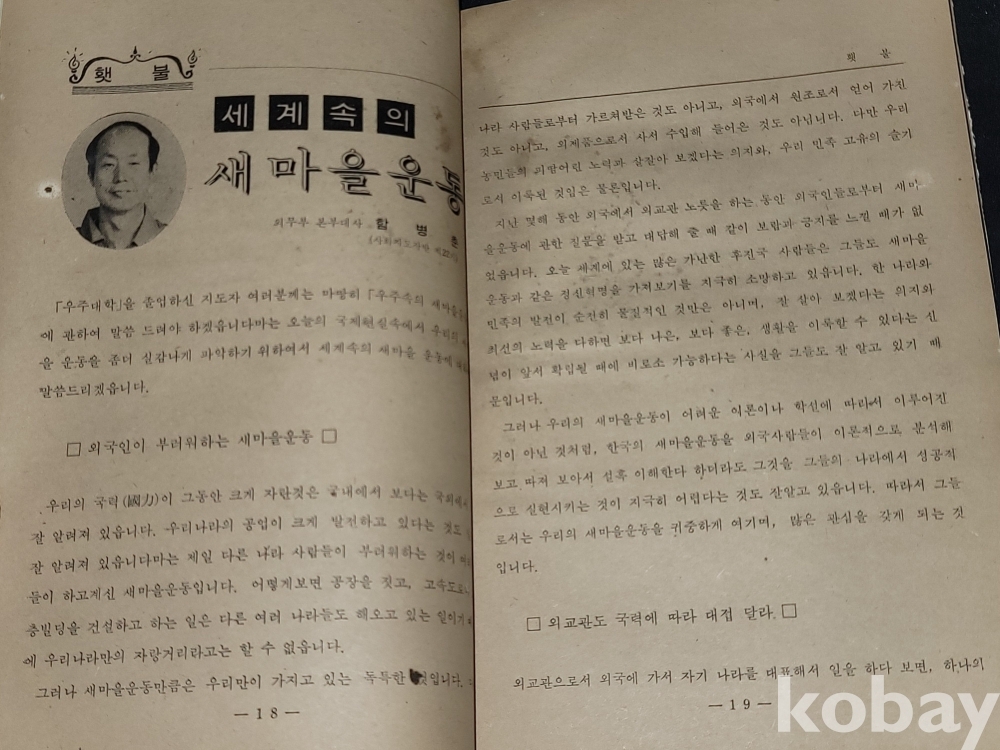 횃 불
세계속의
새마을운동
외무부 본부대사 함 병 춘
「우주대학」을 졸업하신 지도자 여러분께는 마땅히 「우주속의 새마을
에 관하여 말씀 드려야 하겠읍니다마는 오늘의 국제현실속에서 우리의
을 운동을 좀더 실감나게 파악하기 위하여서 세계속의 새마을 운동에
말씀드리겠읍니다.
□ 외국인이 부러워하는 새마을운동 □
우리의 국력(國力)이 그동안 크게 자란것은 국내에서 보다는 국외에서
잘 알려져 있읍니다. 우리나라의 공업이 크게 발전하고 있다는 것도
잘 알려져 있읍니다마는 제일 다른 나라 사람들이 부러워하는 것이
들이 하고계신 새마을운동입니다. 어떻게보면 공장을 짓고, 고속도로나
층빌딩을 건설하고 하는 일은 다른 여러 나라들도 해오고 있는 일이기
에 우리나라만의 자랑거리라고는 할 수 없읍니다.
그러나 새마을운동만큼은 우리만이 가지고 있는 독특한 것입니다.
—18—
횃 불
나라 사람들로부터 가르쳐받은 것도 아니고, 외국에서 원조로서 얻어 가진
것도 아니고, 외제품으로서 사서 수입해 들어온 것도 아닙니다. 다만 우리
농민들의 피땀어린 노력과 잘살아 보겠다는 의지와, 우리 민족 고유의 슬기
로서 이룩된 것임은 물론입니다.
지난 몇해 동안 외국에서 외교관 노릇을 하는 동안 외국인들로부터 새마
을운동에 관한 질문을 받고 대답해 줄 때 같이 보람과 긍지를 느낀 때가 없
었읍니다. 오늘 세계에 있는 많은 가난한 후진국 사람들은 그들도 새마을
운동과 같은 정신혁명을 가져보기를 지극히 소망하고 있읍니다. 한 나라와
민족의 발전이 순전히 물질적인 것만은 아니며, 잘 살아 보겠다는 의지와
최선의 노력을 다하면 보다 나은, 보다 좋은, 생활을 이룩할 수 있다는 신
념이 앞서 확립될 때에 비로소 가능하다는 사실을 그들도 잘 알고 있기 때
문입니다.
그러나 우리의 새마을운동이 어려운 이론이나 학설에 따라서 이루어진
것이 아닌 것처럼, 한국의 새마을운동을 외국사람들이 이론적으로 분석해
보고 따져 보아서 설혹 이해한다 하더라도 그것을 그들의 나라에서 성공적
으로 실현시키는 것이 지극히 어렵다는 것도 잘알고 있읍니다. 따라서 그들
로서는 우리의 새마을운동을 귀중하게 여기며, 많은 관심을 갖게 되는 것
입니다.
□ 외교관도 국력에 따라 대접 달라. □
외교관으로서 외국에 가서 자기 나라를 대표해서 일을 하다 보면, 하나의
—19—
kobay